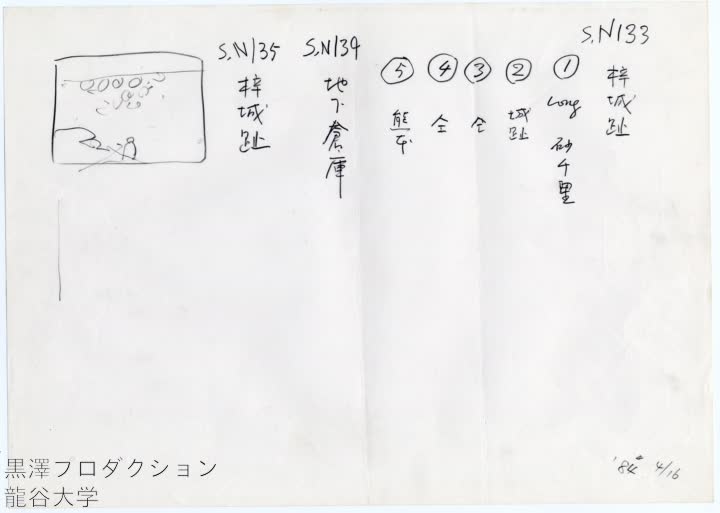 S,N133
梓城趾
①
Long 砂千里
②
城趾
③
仝
④
仝
⑤
熊本
S,N134
地下倉庫
S,N135
梓城趾
'84 4/16
黒澤フロダクション
龍谷大学